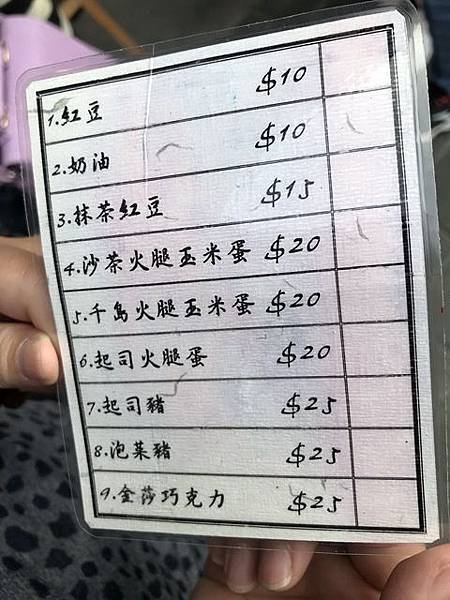 1.紅豆 $10
2.奶油 $10
3.抹茶紅豆 $15
4.沙茶火腿玉米蛋 $20
5.千島火腿玉米蛋 $20
6.起司火腿蛋 $20
7.起司豬 $25
8.泡菜豬 $25
9.金莎巧克力 $25